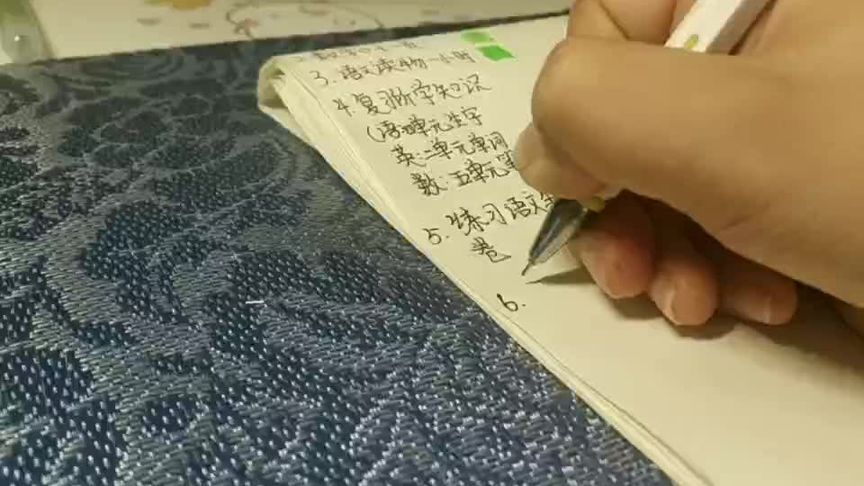 3. 语文读物一小时
4. 复习所学知识
(语:四单元生字
英:二单元单词
数:五单元笔
5. 练习语文
卷
6.